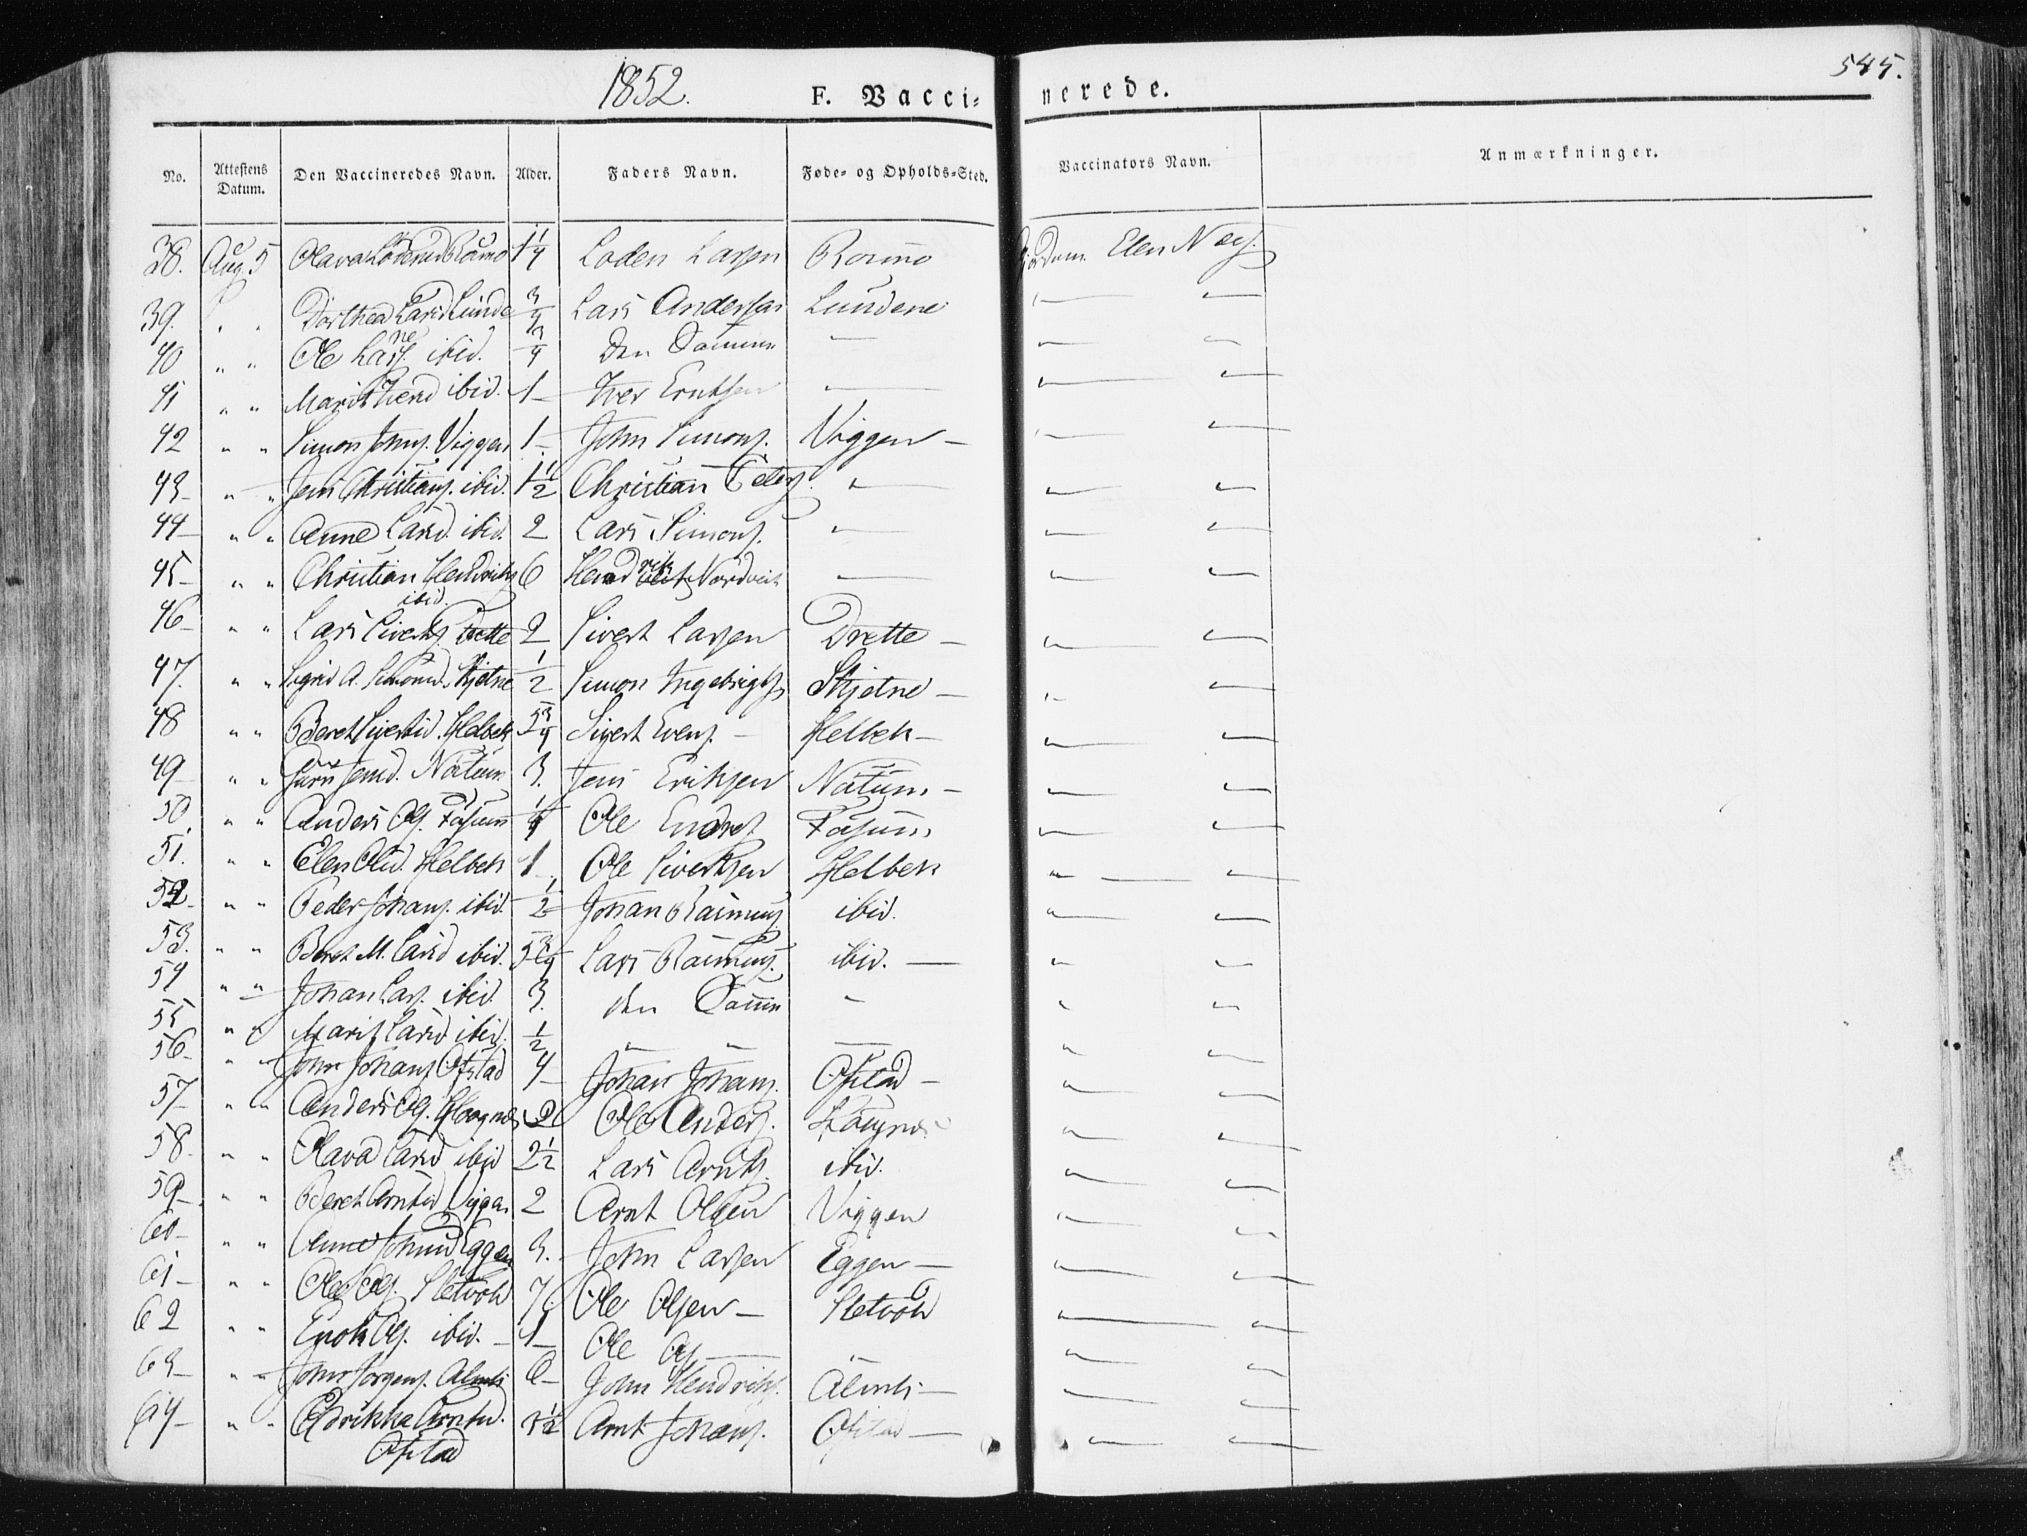 1852.
F. Vacci=
nerede.
545.
No. Attestens Datum. Den Vaccineredes Navn. Alder. Faders Navn. Føde- og Opholds-Sted. Vaccinators Navn. Anmærkninger.
38. Aug. 5 Olava Lodensd Roumo 1 1/4 Loden Larsen Roumo Jordm. Elen Næs.
39. " " Dorthea Larsd. Lunde 3/4 Lars Andersen Lundene " "
40 " " Ole Lars. ibid. 3/4 Den Samme — " "
41 " " Marit ibid. 1 — Iver — " "
42 " " Simon Johns. Viggen 1 — John Simons. Viggen — " "
43 — " " Jens Christians. ibid. 1 1/2 Christian Peters. " " "
44 — " " Anne Larsd. ibid. 2 Lars Simons. " " "
45 — " " Christian Hendriks. ibid. 6 Hendrik Nordvik — " "
46 — " " Lars Siverts. Drette 2 Sivert Larsen Drette — " "
47. " " Sigrid A. Simonsd. Skjetne 1/2 Simon Ingebrigts. Skjetne — " "
48 " " Beret Sivertsd. Helbek 5 3/4 Sivert Evens. — Helbek — " "
49 " " Guri Jensd. Natum 3. Jens Eriksen Natum — " "
50 " " Anders Ols. Fosum 1/4 Ole Fosum " "
51. " " Elen Olsd. Helbek 1 — Ole Sivertsen Helbek " "
52 — " " Peder Johans. ibid. 1/2 Johan Rasmus. ibid. " "
53. " " Beret M. Larsd ibid. 5 3/4 Lars Rasmus. ibid. — " "
54 " " Johan Lars. ibid. 3. den Samme — " "
55 " " Marit Larsd. ibid. 1/2 " " — " "
56 — " " John Johans. Ofstad 4 — Johan Johans. Ofstad — " "
57 — " " Anders Ols. Haagnes 2 Ole Anders. " "
58. " " Olava Larsd ibid 2 1/2 Lars Arnts. ibid. " "
59 — " " Beret Arntsd Viggen 2 Arnt Olsen Viggen " "
60 — " " Anne Johnsd Eggen 3. John Larsen Eggen — " "
61 — " " Ole Ols. Sletvold 7 Ole Olsen — Sletvold " "
62 " " Enok Ols. ibid. — 1 — Ole Ols — " " "
63 — " " John Almli 6 — John Hendriks. Almli — " "
64 — " " Arntsd. Ofstad 1/2 Arnt Johans. Ofstad — " "